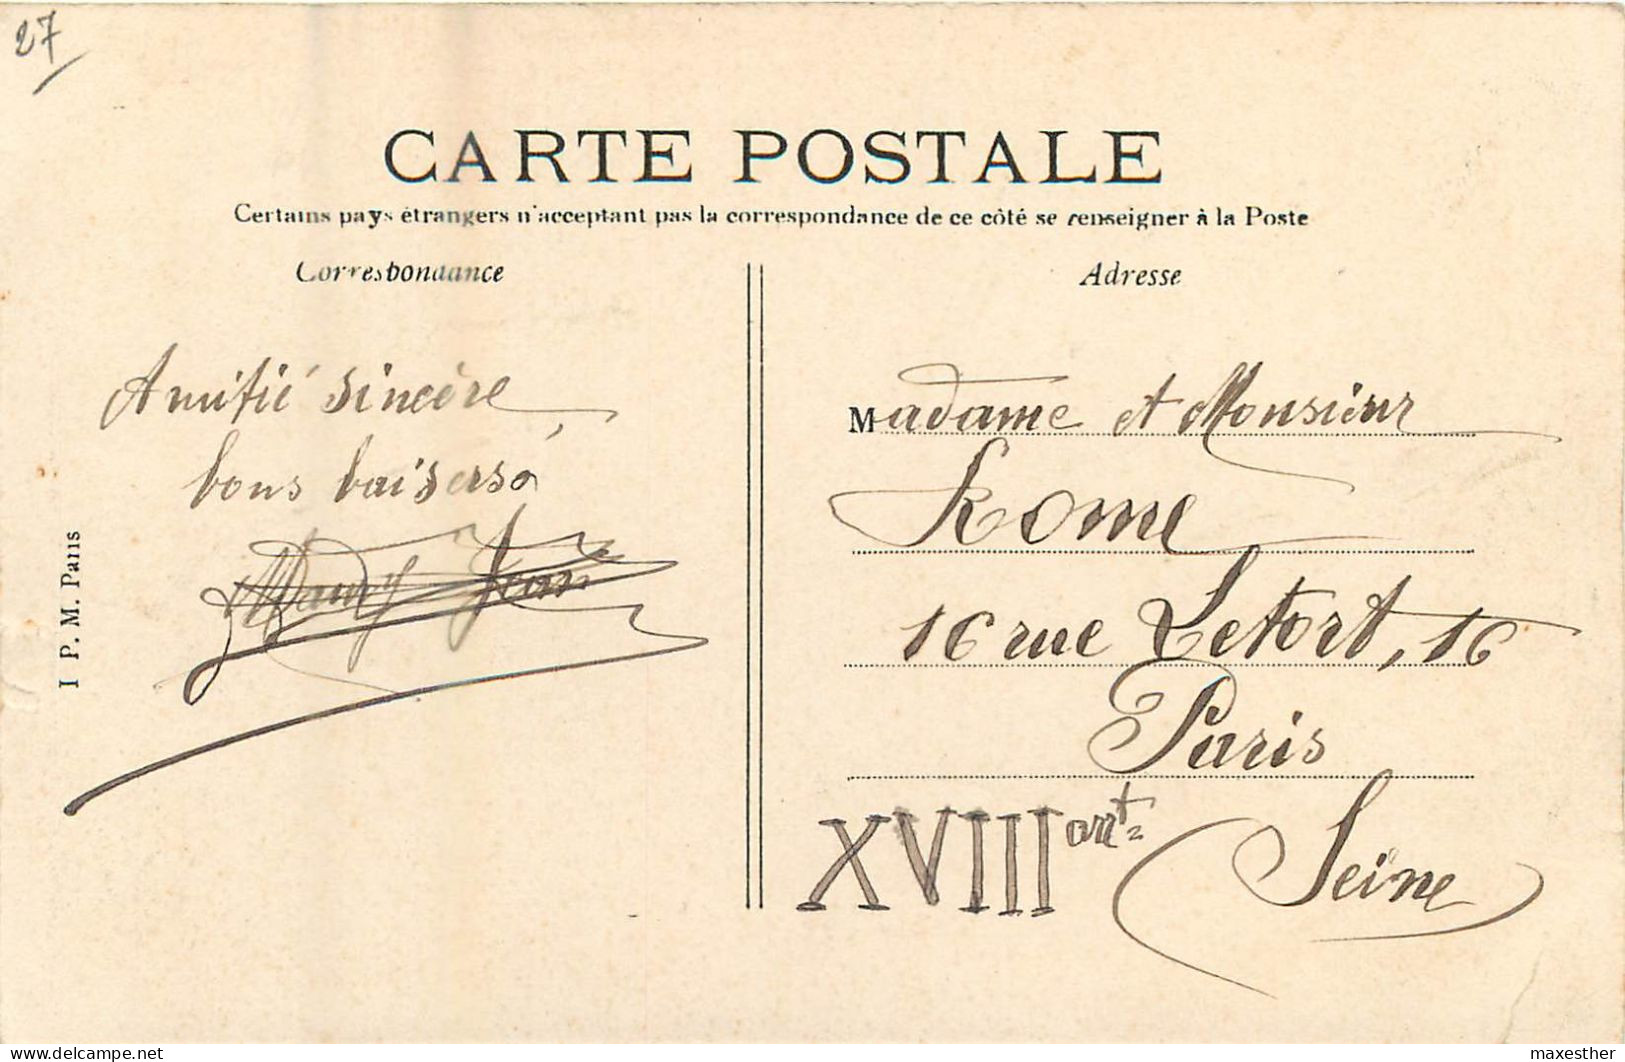 27
CARTE POSTALE
Certains pays étrangers n'acceptant pas la correspondance de ce côté se renseigner à la Poste
Correspondance
Amitié sincère,
bons baisers
Jean
I P. M. Paris
Adresse
Madame et Monsieur
Rome
16 rue Letort, 16
Paris
XVIII arrt
Seine
www.delcampe.net
maxesther